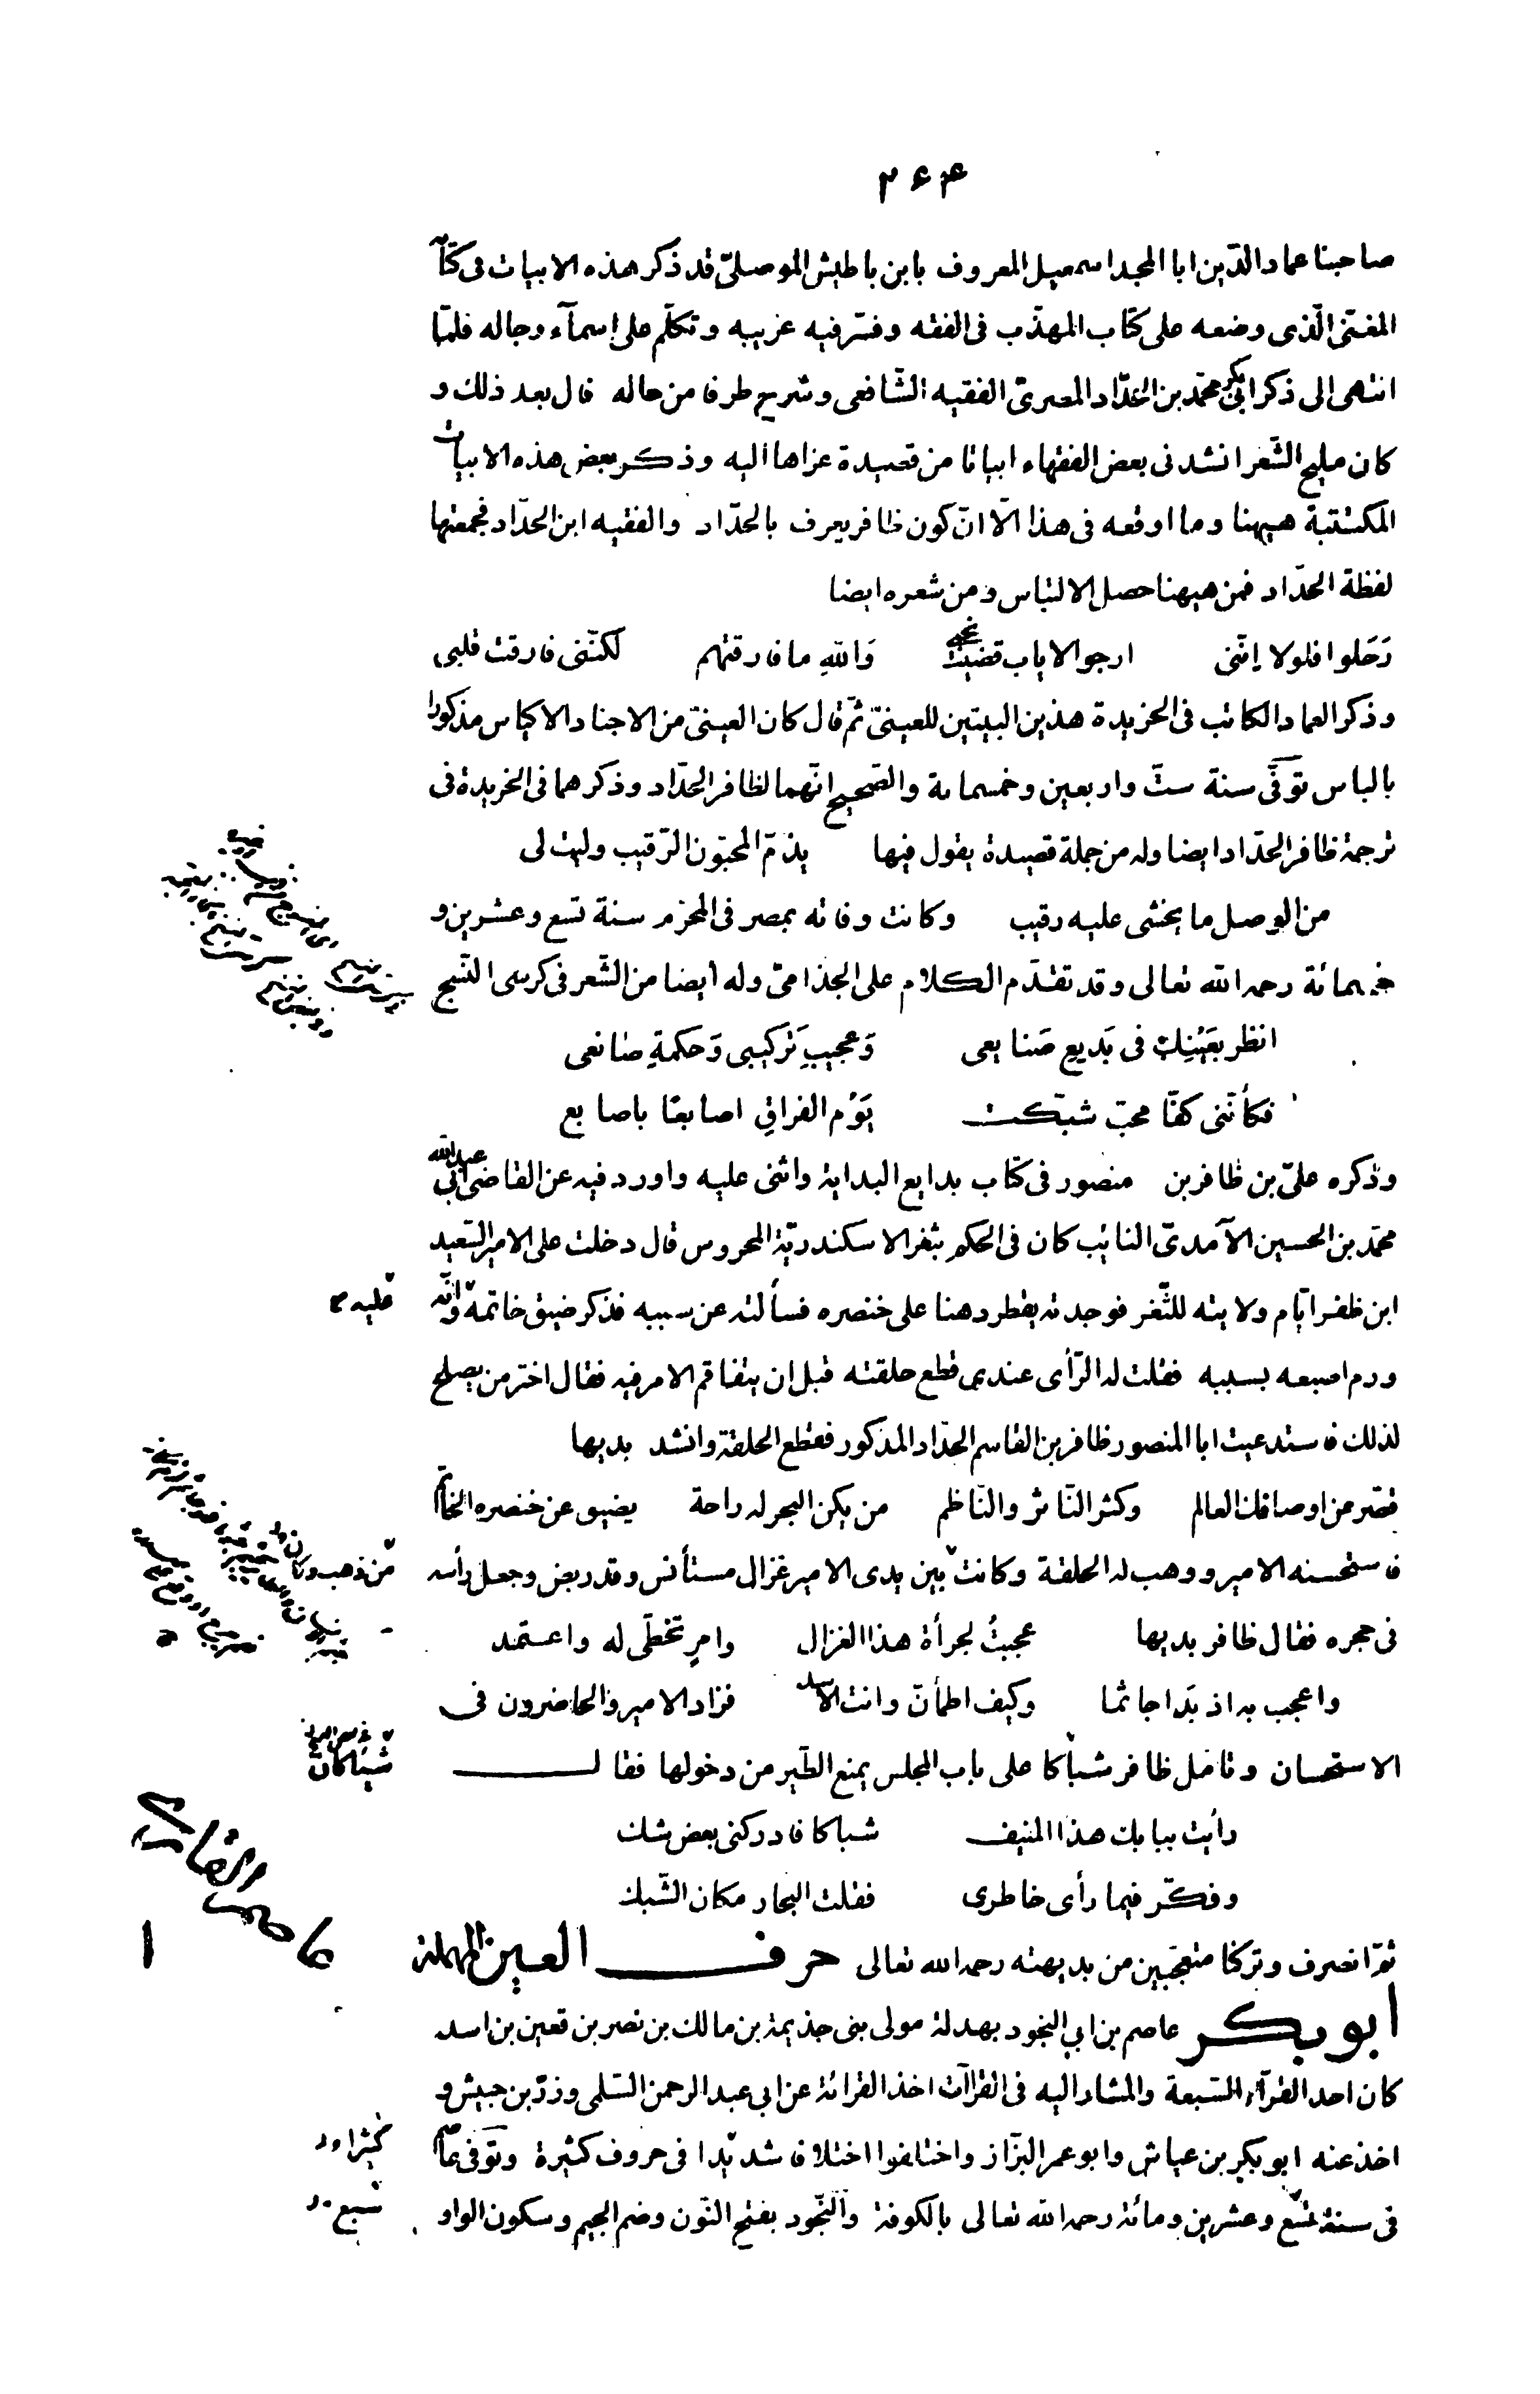 ٢٤٣
صاحبنا عماد الدّين ابا المجد اسمعيل المعروف بابن باطيش الموصلىّ قد ذكر هذه الابيات فى كتاب
المغنى الّذى وضعه على كتاب المهذّب فى الفقه وفسّر فيه غريبه وتكلّم على اسمآء رجاله فلمّا
انتهى الى ذكر ابى بكر محمّد بن الحدّاد المصرىّ الفقيه الشّافعى وشرح طرفا من حاله قال بعد ذلك و
كان مليح الشّعر انشدنى بعض الفقهاء ابياتا من قصيدة عزاها اليه وذكر بعض هذه الابيات
المكتتبة هيهنا وما اوقعه فى هذا الّا انّ كون ظافر يعرف بالحدّاد والفقيه ابن الحدّاد فجمعتها
لفظة الحدّاد فمن هيهنا حصل الالتباس ومن شعره ايضا
رَحَلوا فلولا اِنّنى ارجو الاياب قضيت نحبى وَاللهِ ما فارقتهم لكنّنى فارقت قلبى
وذكر العماد الكاتب فى الخريدة هذين البيتين للعينىّ ثمّ قال كان العينىّ من الاجناد الاكياس مذكورا
بالباس توفّى سنة ستّ واربعين وخمسمائة والصّحيح انّهما لظافر الحدّاد وذكرهما فى الخريدة فى
ترجمة ظافر الحدّاد ايضا وله من جملة قصيدة يقول فيها يذمّ المحبّون الرّقيب وليت لى
من الوصل ما يخشى عليه رقيب وكانت وفاته بمصر فى المحرّم سنة تسع وعشرين و
خمسمائة رحمه الله تعالى وقد تقدّم الكلام على الجذامىّ وله أيضا من الشّعر فى كرسى النّسج
انظر بعَيْنِك فى بَديعِ صَنايعى وَعجيبِ تَركيبى وَحكمةِ صانعى
فكأنّنى كفّا محبّ شبّكت يَوْم الفراقِ اصابعًا باصابع
وذكره علىّ بن ظافر بن منصور فى كتاب بدايع البداية واثنى عليه واورد فيه عن القاضى ابى عبد الله
محمّد بن الحسين الآمدىّ النائب كان فى الحكم بثغر الاسكندريّة المحروس قال دخلت على الامير السّعيد
ابن ظفر ايّام ولايته للثّغر فوجدته يقطر دهنا على خنصره فسألته عن سببه فذكر ضيق خاتمه وانّه
عليه
ورم اصبعه بسببه فقلت له الرّأى عندى قطع حلقته قبل ان يتفاقم الامر فيه فقال اختر من يصلح
لذلك فاستدعيت ابا المنصور ظافر بن القاسم الحدّاد المذكور فقطع الحلقة وانشد بديها
قصّر من اوصافك العالم وكثر النّاثر والنّاظم من يكن البحر له راحة يضيق عن خنصره الخاتم
فاستحسنه الامير ووهب له الحلقة وكانت بين يدى الامير غزال مستأنس وقد ربض وجعل رأسه
من ذهب وكان
فى حجره فقال ظافر بديها عجبتُ لجرأة هذا الغزال وامرٍ تخطّى له واعتمد
واعجب به اذ بَدا جاثما وكيف اطمأنّ وانت الاسد فزاد الامير والحاضرون فى
الاستحسان وتامّل ظافر شباكا على باب المجلس يمنع الطّير من دخولها فقال
شبّاكان
رأيت ببابك هذا المنيف شباكا فادركنى بعض شك
وفكّر فيما رأى خاطرى فقلت البحار مكان الشّبك
ثمّ انصرف وتركنا متعجّبين من بديهته رحمه الله تعالى حرف العين المهملة
ابو بكر عاصم بن ابى النجود بهدلة مولى بنى جذيمة بن مالك بن نصر بن قعين بن اسد
كان احد القرّآء السّبعة والمشار اليه فى القراآت اخذ القرائة عن ابى عبد الرحمن السّلمى وزرّ بن حبيش و
اخذ عنه ابو بكر بن عياش وابو عمر البزّاز واختلفوا اختلافا شديدا فى حروف كثيرة وتوفى عاصم
كثيرا
فى سنة تسع وعشرين ومائة رحمه الله تعالى بالكوفة والنّجود بفتح النّون وضم الجيم وسكون الواو
سبع